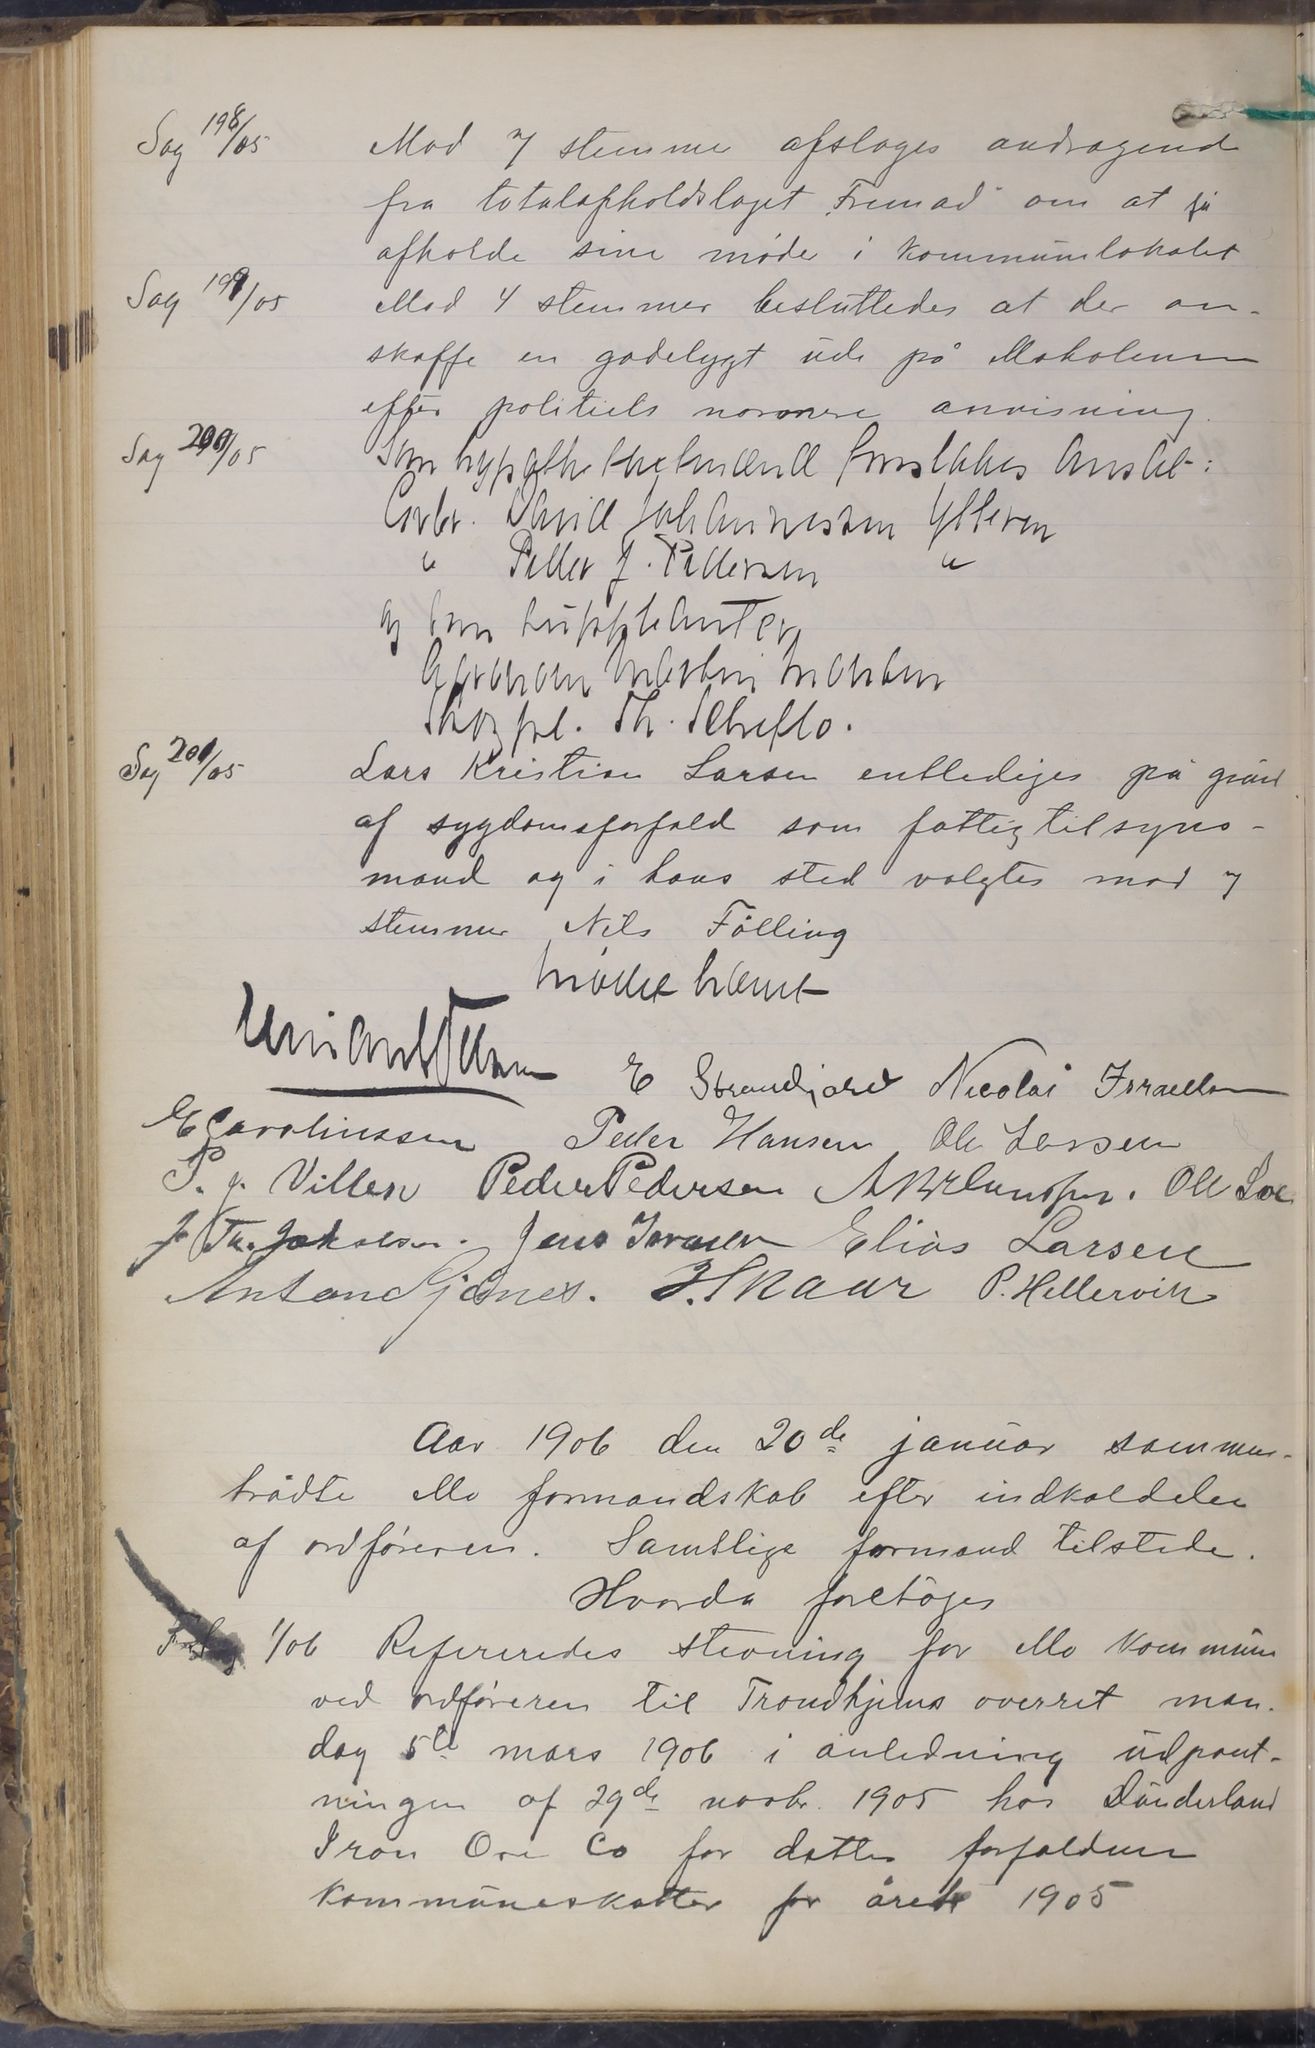 Sag 198/05 Mod 7 stemme afsloges andragende
fra totalafholdslaget "Fremad" om at få
afholde sine møde i kommunelokalet
Sag 199/05 Mod 4 stemmer besluttedes at der an-
skaffe en gadelygt ude på Moholmen
efter politiets nærmere anvisning.
Sag 200/05 Som hypothekagtmænd foreslåes ansat:
Grbr. David Johannessen Ytteren
" Peder J. Pedersen "
og som suppleanter
Martin
Th.
Sag 201/05 Lars Kristian Larsen entlediges på grund
af sygdomsforfald som fattigtilsyns-
mand og i hans sted valgtes mod 7
stemmer Nils Fölling
Mødet hævet
E Strandjord Nicolai Israelsen
E Carolinssen Peder Hansen Ole Larsen
P. J. Villen Peder Pedersen Ole
J Th. Jakobsen. Jens Iversen Elias Larsen
Anton Sjånes. J. Skaar P. Hellervik
Aar 1906 den 20de januar sammen-
trådte Mo formandskab efter indkaldelse
af ordføreren. Samtlige formænd tilstede.
Hvorda foretoges
1/06 Refereredes stevning for Mo kommune
ved ordføreren til Trondhjems overret man-
dag 5te mars 1906 i anledning udpant-
ningen af 29de novbr. 1905 hos Dunderland
Iron Ore Co for dettes forfaldne
kommuneskatter for året 1905